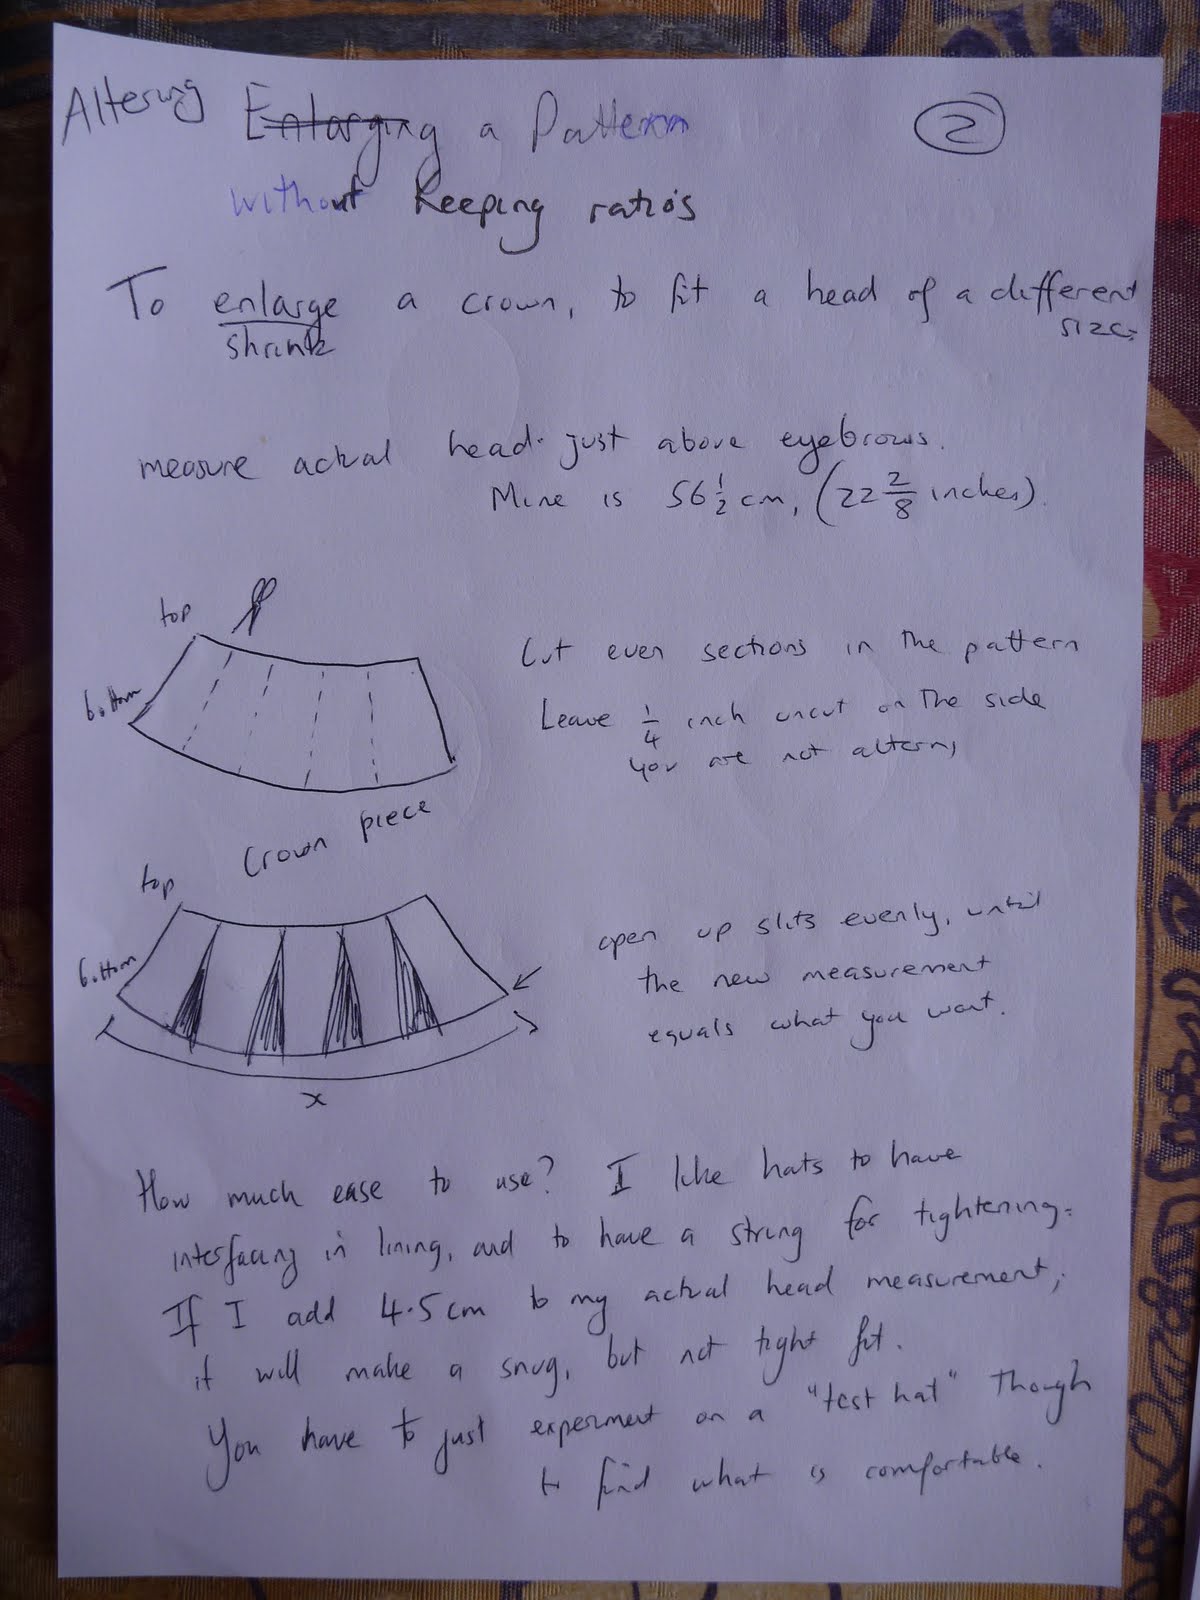 Altering Enlarging a Pattern
②
without keeping ratios
To enlarge a crown, to fit a head of a different
shrink
size.
measure actual head just above eyebrows.
Mine is 56 1/2 cm, (22 2/8 inches).
top
bottom
Cut even sections in the pattern
Leave 1/4 inch uncut on the side
you are not altering
Crown piece
top
bottom
open up slits evenly, until
the new measurement
equals what you want.
x
How much ease to use? I like hats to have
interfacing in lining, and to have a string for tightening.
If I add 4.5cm to my actual head measurement,
it will make a snug, but not tight fit.
You have to just experiment on a "test hat" though
to find what is comfortable.